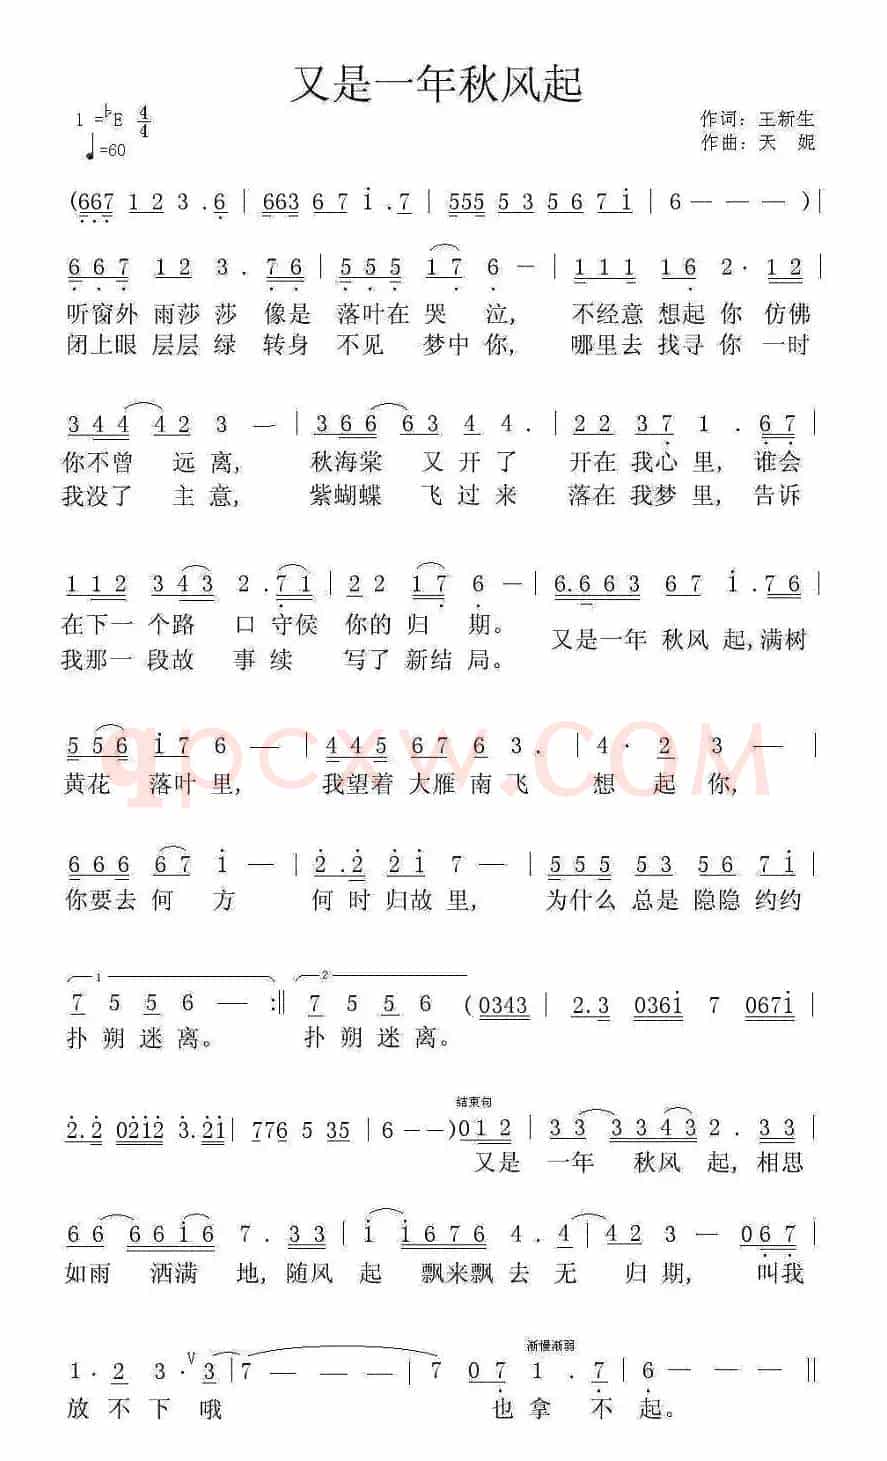 又是一年秋风起
1=♭E 4/4
作词：王新生
♩=60
作曲：天 妮
(667 1 2 3 .6 | 663 6 7 i .7 | 555 5 3 5 6 7 i | 6 — — — )|
6 6 7 1 2 3 . 7 6 | 5 5 5 1 7 6 — | 1 1 1 1 6 2· 1 2 |
听窗外 雨莎莎 像是 落叶在 哭 泣, 不经意 想起你 仿佛
闭上眼 层层绿 转身 不见 梦中你, 哪里去 找寻你 一时
3 4 4 4 2 3 — | 3 6 6 6 3 4 4 . | 2 2 3 7 1 . 6 7 |
你不曾 远离, 秋海棠 又开了 开在 我心里, 谁会
我没了 主意, 紫蝴蝶 飞过来 落在 我梦里, 告诉
1 1 2 3 4 3 2 .7 1 | 2 2 1 7 6 — | 6.6 6 3 6 7 i .7 6 |
在下一 个路 口 守侯 你的 归 期。 又是一年 秋风 起,满树
我那一 段故 事续 写了 新结 局。
5 5 6 i 7 6 — | 4 4 5 6 7 6 3. | 4 · 2 3 — |
黄花 落叶里, 我望着 大雁南飞 想 起你,
qpcxw.COM
6 6 6 6 7 i — | 2 . 2 2 i 7 — | 5 5 5 5 3 5 6 7 i |
你要去 何 方 何 时 归故 里, 为什么 总是 隐隐 约约
1 2
7 5 5 6 — :‖ 7 5 5 6 (0343 | 2.3 036i 7 067i |
扑朔迷离。 扑朔迷离。
结束句
2.2 02i2 3.2i | 776 5 35 | 6 — — )0 1 2 | 3 3 3 3 4 3 2 . 3 3 |
又是 一年 秋风 起, 相思
6 6 6 6 i 6 7 . 3 3 | i i 6 7 6 4 . 4 | 4 2 3 — 0 6 7 |
如雨 洒满 地, 随风 起 飘来飘 去 无 归 期, 叫我
渐慢渐弱
1 · 2 3 · V 3 | 7 — — 7 0 7 i . 7 | 6 — — — ‖
放 不 下 哦 也 拿 不 起。